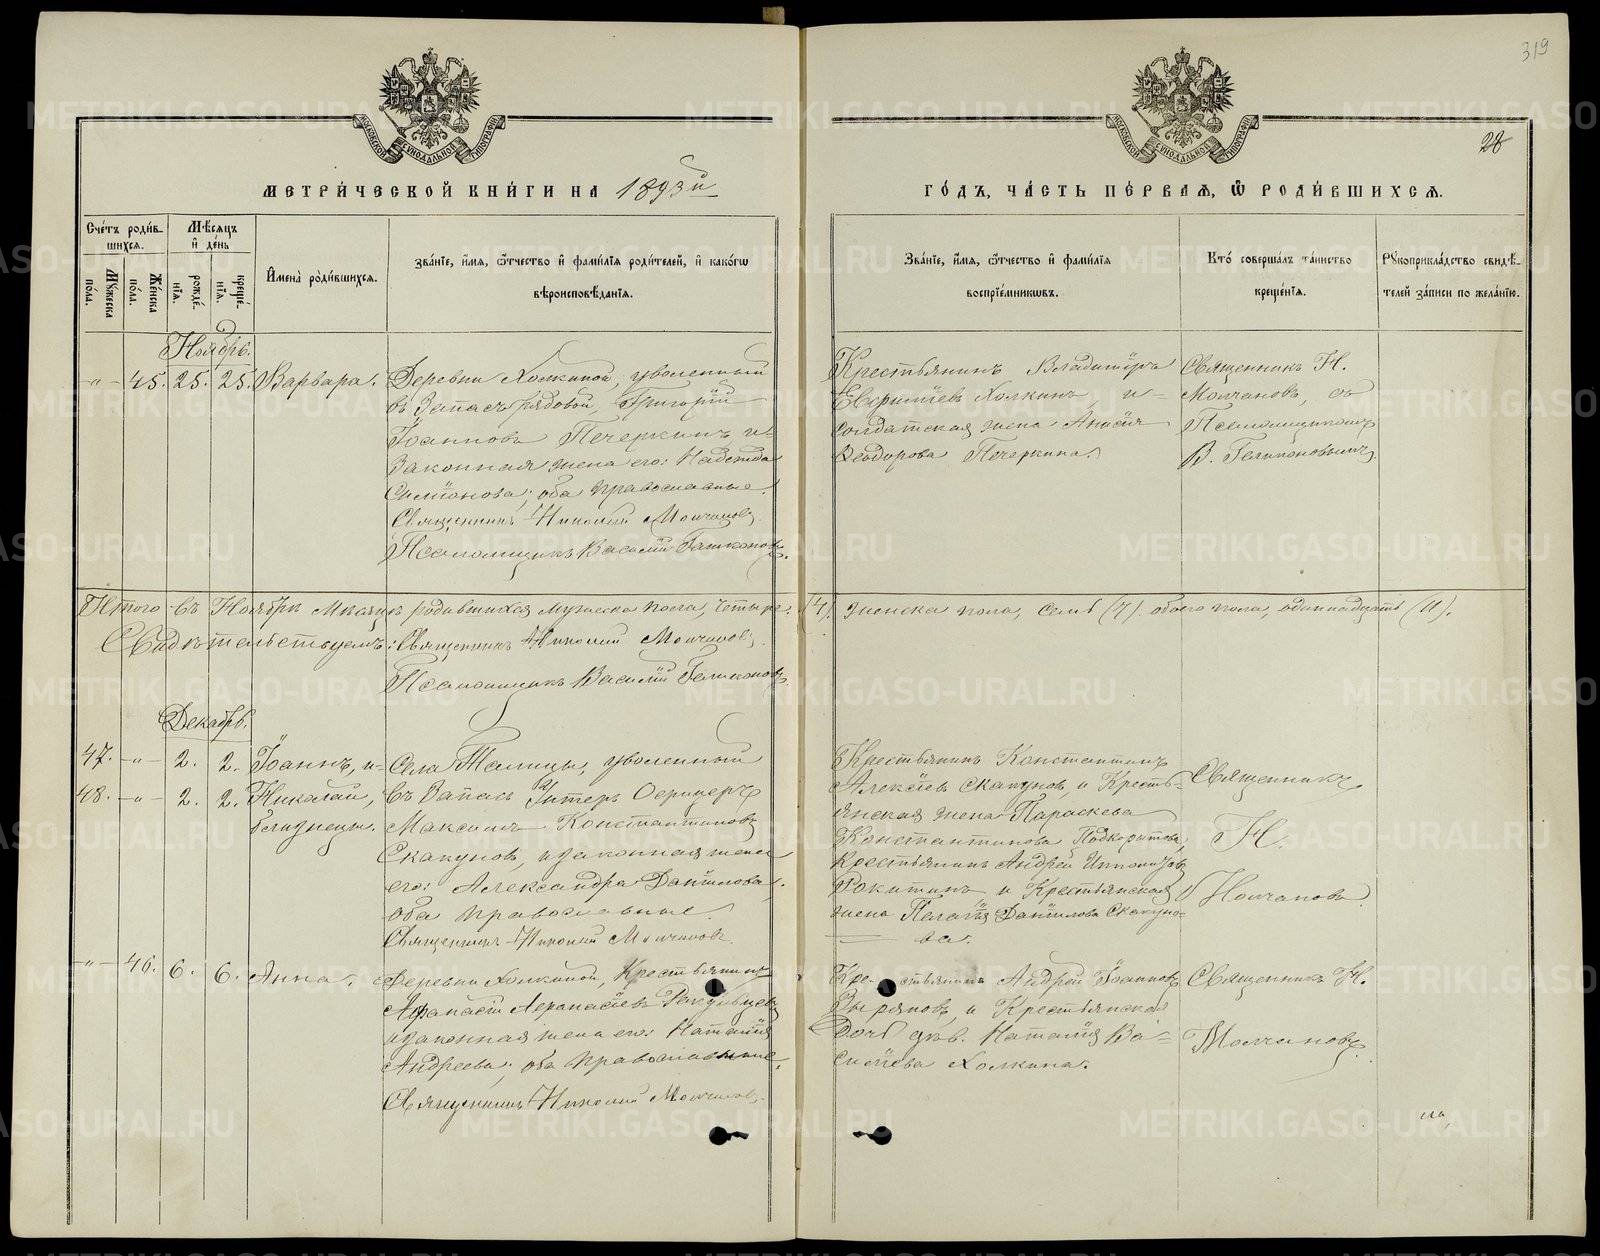 319
28
МЕТРИ́ЧЕСКОЙ КНИ́ГИ НА 1893й
ГО́ДЪ, ЧА́СТЬ ПЕ́РВАЯ, Ѿ РОДИ́ВШИХСЯ.
Сче́тъ роди́вшихся.
Мѣ́сяцъ и҆ де́нь
Мꙋ́жеска по́ла.
Же́нска по́ла.
рожде́нїѧ.
креще́нїѧ.
И҆мена̀ роди́вшихсѧ.
Зва́нїе, и҆́мѧ, ѻ҆́тчество и҆ фами́лїѧ роди́телей, и҆ како́гѡ
вѣроисповѣ́данїѧ.
Зва́нїе, и҆́мѧ, ѻ҆́тчество и҆ фами́лїѧ
воспрїе́мникѡвъ.
Кто́ соверша́лъ та́инство
креще́нїѧ.
Рꙋкоприкла́дство свидѣ́-
телей за́писи по жела́нїю.
Ноябрь.
-"- 45. 25. 25. Варвара.
Деревни Холкиной, уволенный
въ Запасъ рядовой, Григорій
Іоанновъ Печеркинъ, и
Законная жена его: Надежда
Симіонова; оба православные.
Священникъ Николай Молчановъ
Псаломщикъ Василій Геликоновъ.
Крестьянинъ Владиміръ
Холкинъ, и
солдатская жена Анисія
Ѳеодорова Печеркина.
Священникъ Н.
Молчановъ, съ
Псаломщикомъ
В. Геликоновымъ.
Итого въ Ноябрѣ Мѣсяцѣ родившихся мужеска пола, четыре (4). женска пола, семь (7). обоего пола, одиннадцать (11).
Свидѣтельствуемъ: Священникъ Николай Молчановъ
Псаломщикъ Василій Геликоновъ.
Декабрь.
47. -"- 2. 2. Іоаннъ, и
48. -"- 2. 2. Николай,
близнецы.
Села Талицы, уволенный
въ Запасъ Унтеръ Офицеръ
Максимъ Константиновъ
Скакуновъ, и законная жена
его: Александра Даніилова;
оба православные.
Священникъ Николай Молчановъ.
Крестьянинъ Константинъ
Алексіевъ Скакуновъ, и Кресть-
янская жена Параскева
Константинова Подкорытова;
Крестьянинъ Андрей
Рокитинъ и Крестьянская
жена Пелагія Даніилова Скакуно-
ва.
Священникъ
Н.
Молчановъ.
-"- 46. 6. 6. Анна.
Деревни Холкиной, Крестьянинъ
Аѳанасій Аѳанасіевъ
и законная жена его: Наталія
Андреева; оба православные.
Священникъ Николай Молчановъ.
Крестьянинъ Андрей Іоанновъ
Зыряновъ, и Крестьянская
Дочь дѣв. Наталія Ва-
силіева Холкина.
Священникъ Н.
Молчановъ.
METRIKI.GASO-URAL.RU